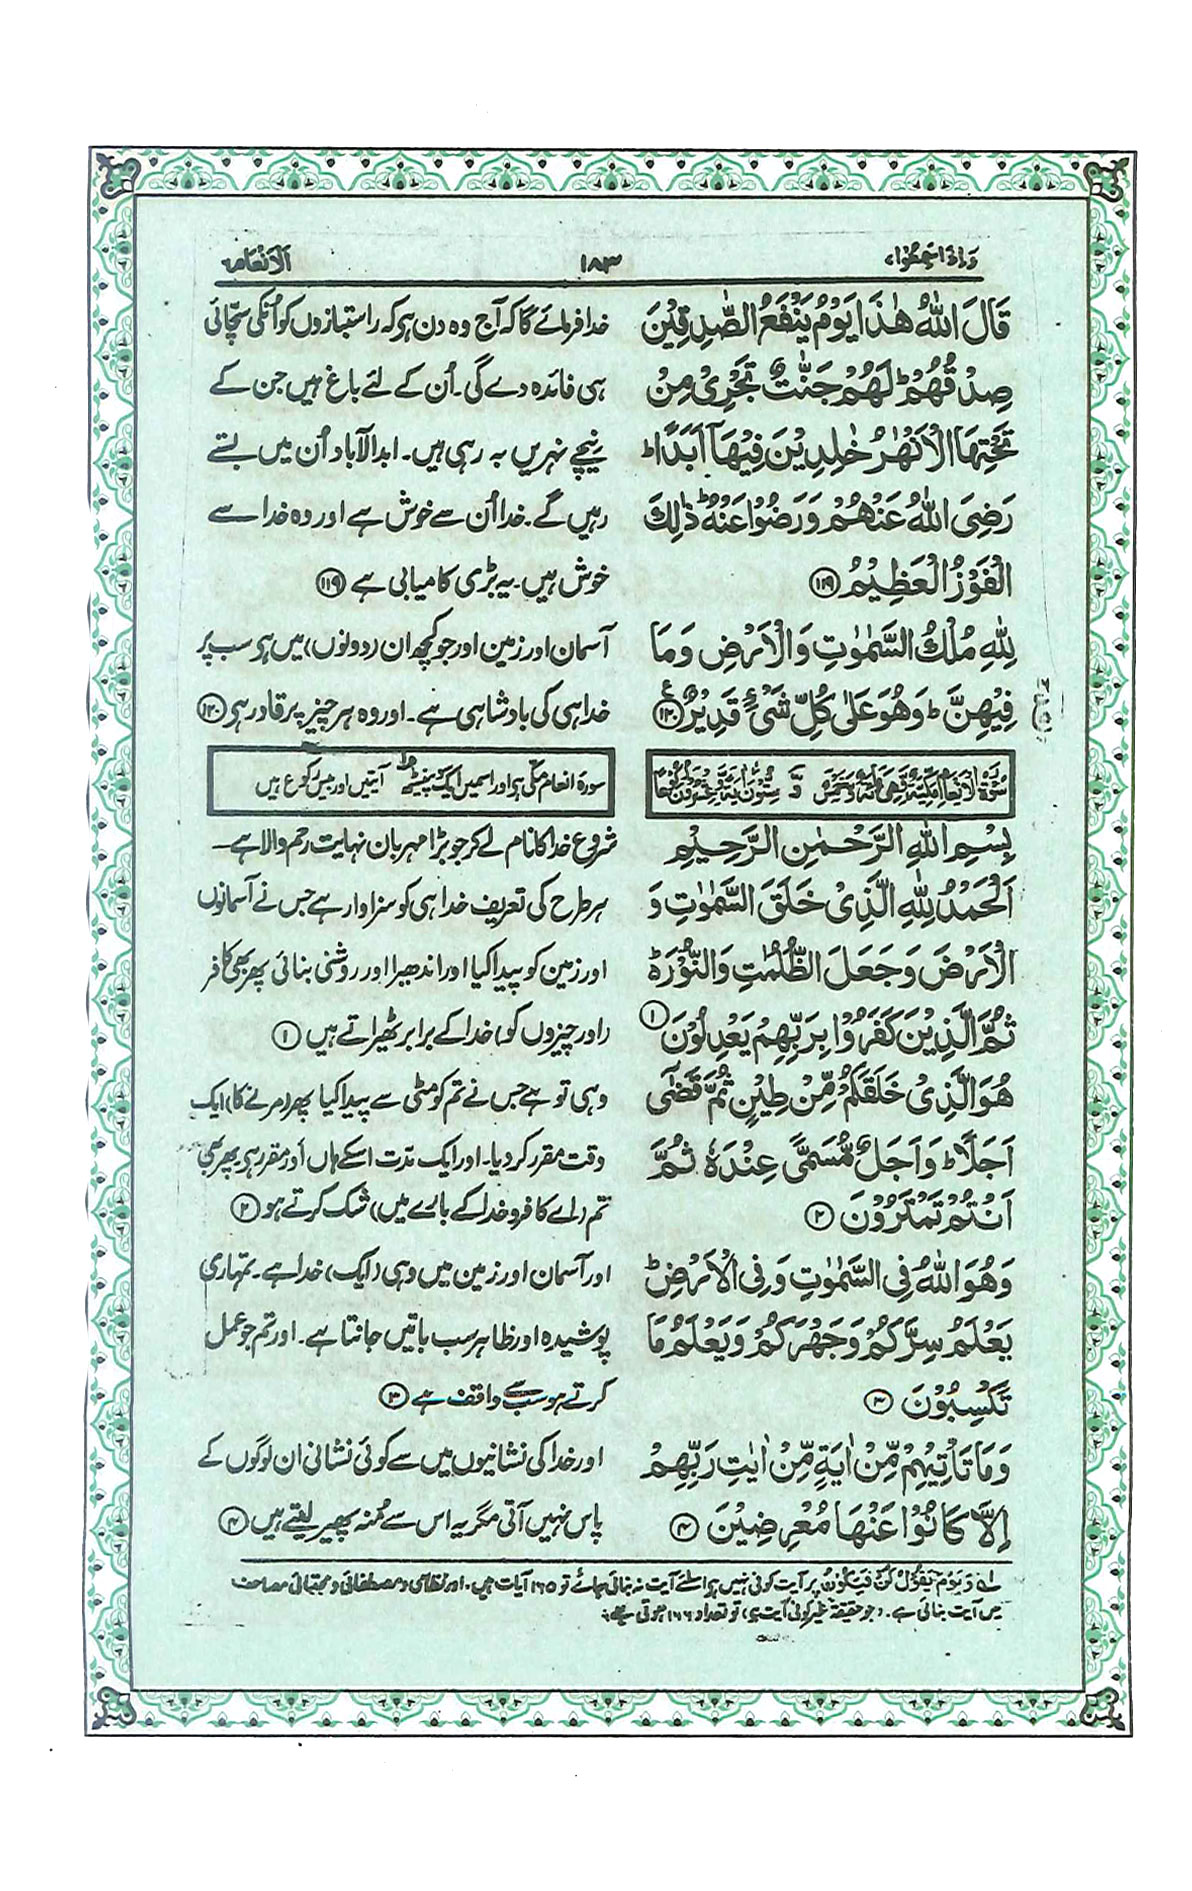 وَاِذَا سَمِعُوْا ۷
۱۸۳
اَلْاَنْعَام ۶
قَالَ اللّٰهُ هٰذَا يَوْمُ يَنْفَعُ الصّٰدِقِيْنَ
صِدْقُهُمْ ؕ لَهُمْ جَنّٰتٌ تَجْرِيْ مِنْ
تَحْتِهَا الْاَنْهٰرُ خٰلِدِيْنَ فِيْهَاۤ اَبَدًا ؕ
رَضِيَ اللّٰهُ عَنْهُمْ وَرَضُوْا عَنْهُ ؕ ذٰلِكَ
الْفَوْزُ الْعَظِيْمُ ۝۱۱۹
لِلّٰهِ مُلْكُ السَّمٰوٰتِ وَالْاَرْضِ وَمَا
فِيْهِنَّ ؕ وَهُوَ عَلٰى كُلِّ شَيْءٍ قَدِيْرٌ ۝۱۲۰
خدا فرمائے گا کہ آج وہ دن ہی کہ راستبازوں کو اُنکی سچّائی
ہی فائدہ دے گی۔ اُن کے لئے باغ ہیں جن کے
نیچے نہریں بہ رہی ہیں۔ ابدالآباد اُن میں بستے
رہیں گے۔ خدا اُن سے خوش ہے اور وہ خدا سے
خوش ہیں۔ یہ بڑی کامیابی ہے ۝۱۱۹
آسمان اور زمین اور جو کچھ ان (دونوں) میں ہی سب پر
خدا ہی کی بادشاہی ہے۔ اور وہ ہر چیز پر قادر ہی ۝۱۲۰
سُوْرَةُ الْاَنْعَامِ مَكِّيَّةٌ وَّهِيَ مِائَةٌ وَّخَمْسٌ وَّ سِتُّوْنَ اٰيَةً وَّعِشْرُوْنَ رُكُوْعًا
سورۂ انعام مکّی ہی اور اسمیں ایک پینسٹھ آیتیں اور بیس رکوع ہیں
بِسْمِ اللّٰهِ الرَّحْمٰنِ الرَّحِيْمِ
اَلْحَمْدُ لِلّٰهِ الَّذِيْ خَلَقَ السَّمٰوٰتِ وَ
الْاَرْضَ وَجَعَلَ الظُّلُمٰتِ وَالنُّوْرَ ؕ۬
ثُمَّ الَّذِيْنَ كَفَرُوْا بِرَبِّهِمْ يَعْدِلُوْنَ ۝۱
هُوَ الَّذِيْ خَلَقَكُمْ مِّنْ طِيْنٍ ثُمَّ قَضٰۤى
اَجَلًا ؕ وَاَجَلٌ مُّسَمًّى عِنْدَهٗ ثُمَّ
اَنْتُمْ تَمْتَرُوْنَ ۝۲
وَهُوَ اللّٰهُ فِي السَّمٰوٰتِ وَفِي الْاَرْضِ ؕ
يَعْلَمُ سِرَّكُمْ وَجَهْرَكُمْ وَيَعْلَمُ مَا
تَكْسِبُوْنَ ۝۳
وَمَا تَاْتِيْهِمْ مِّنْ اٰيَةٍ مِّنْ اٰيٰتِ رَبِّهِمْ
اِلَّا كَانُوْا عَنْهَا مُعْرِضِيْنَ ۝۴
شروع خدا کا نام لے کر جو بڑا مہربان نہایت رحم والا ہے۔
ہر طرح کی تعریف خدا ہی کو سزاوار ہے جس نے آسمانوں
اور زمین کو پیدا کیا اور اندھیرا اور روشنی بنائی پھر بھی کافر
(اور چیزوں کو) خدا کے برابر ٹھیراتے ہیں ۝۱
وہی تو ہے جس نے تم کو مٹی سے پیدا کیا پھر (مرنے کا) ایک
وقت مقرر کر دیا۔ اور ایک مدت اسکے ہاں اَور مقرر ہی پھر بھی
تم (اے کافرو خدا کے بارے میں) شک کرتے ہو ۝۲
اور آسمان اور زمین میں وہی (ایک) خدا ہے۔ تمہاری
پوشیدہ اور ظاہر سب باتیں جانتا ہے۔ اور تم جو عمل
کرتے ہو سب سے واقف ہے ۝۳
اور خدا کی نشانیوں میں سے کوئی نشانی ان لوگوں کے
پاس نہیں آتی مگر یہ اس سے مُنہ پھیر لیتے ہیں ۝۴
لے وَيَوْمَ يَقُوْلُ كُنْ فَيَكُوْنُ پر آیت کوئی نہیں ہی اسلئے آیت نہ بنائی جائے تو ۱۶۵ آیات ہیں۔ اور نظامی و مصطفائی و مجتبائی مصاحف
میں آیت بنائی ہے۔ (جو حقیقۃً غیر کوفی آیت ہی) تو تعداد ۱۶۶ ہوتی ہے۔